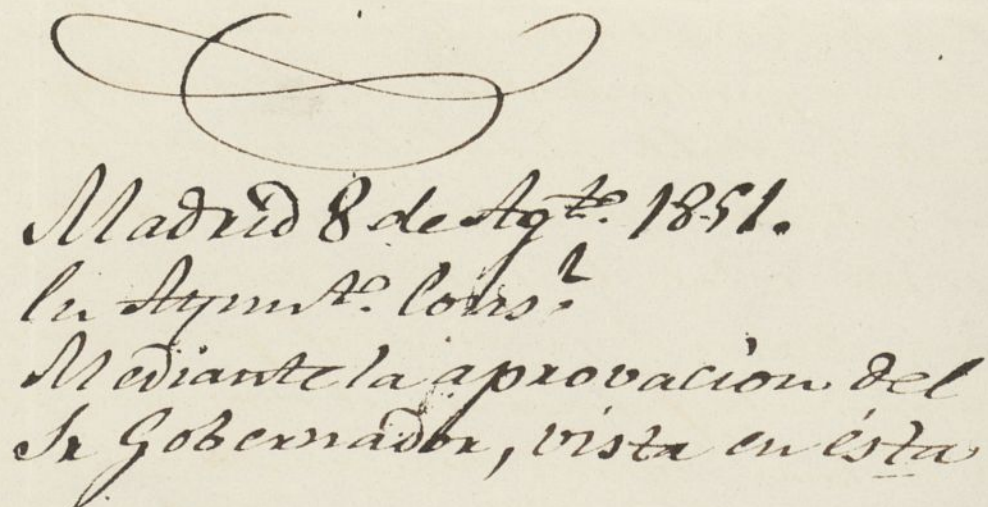 Madrid 8 de Agto. 1851.
En Ayunto. Consl.
Mediante la aprovacion del
Sr Gobernador, vista en ésta